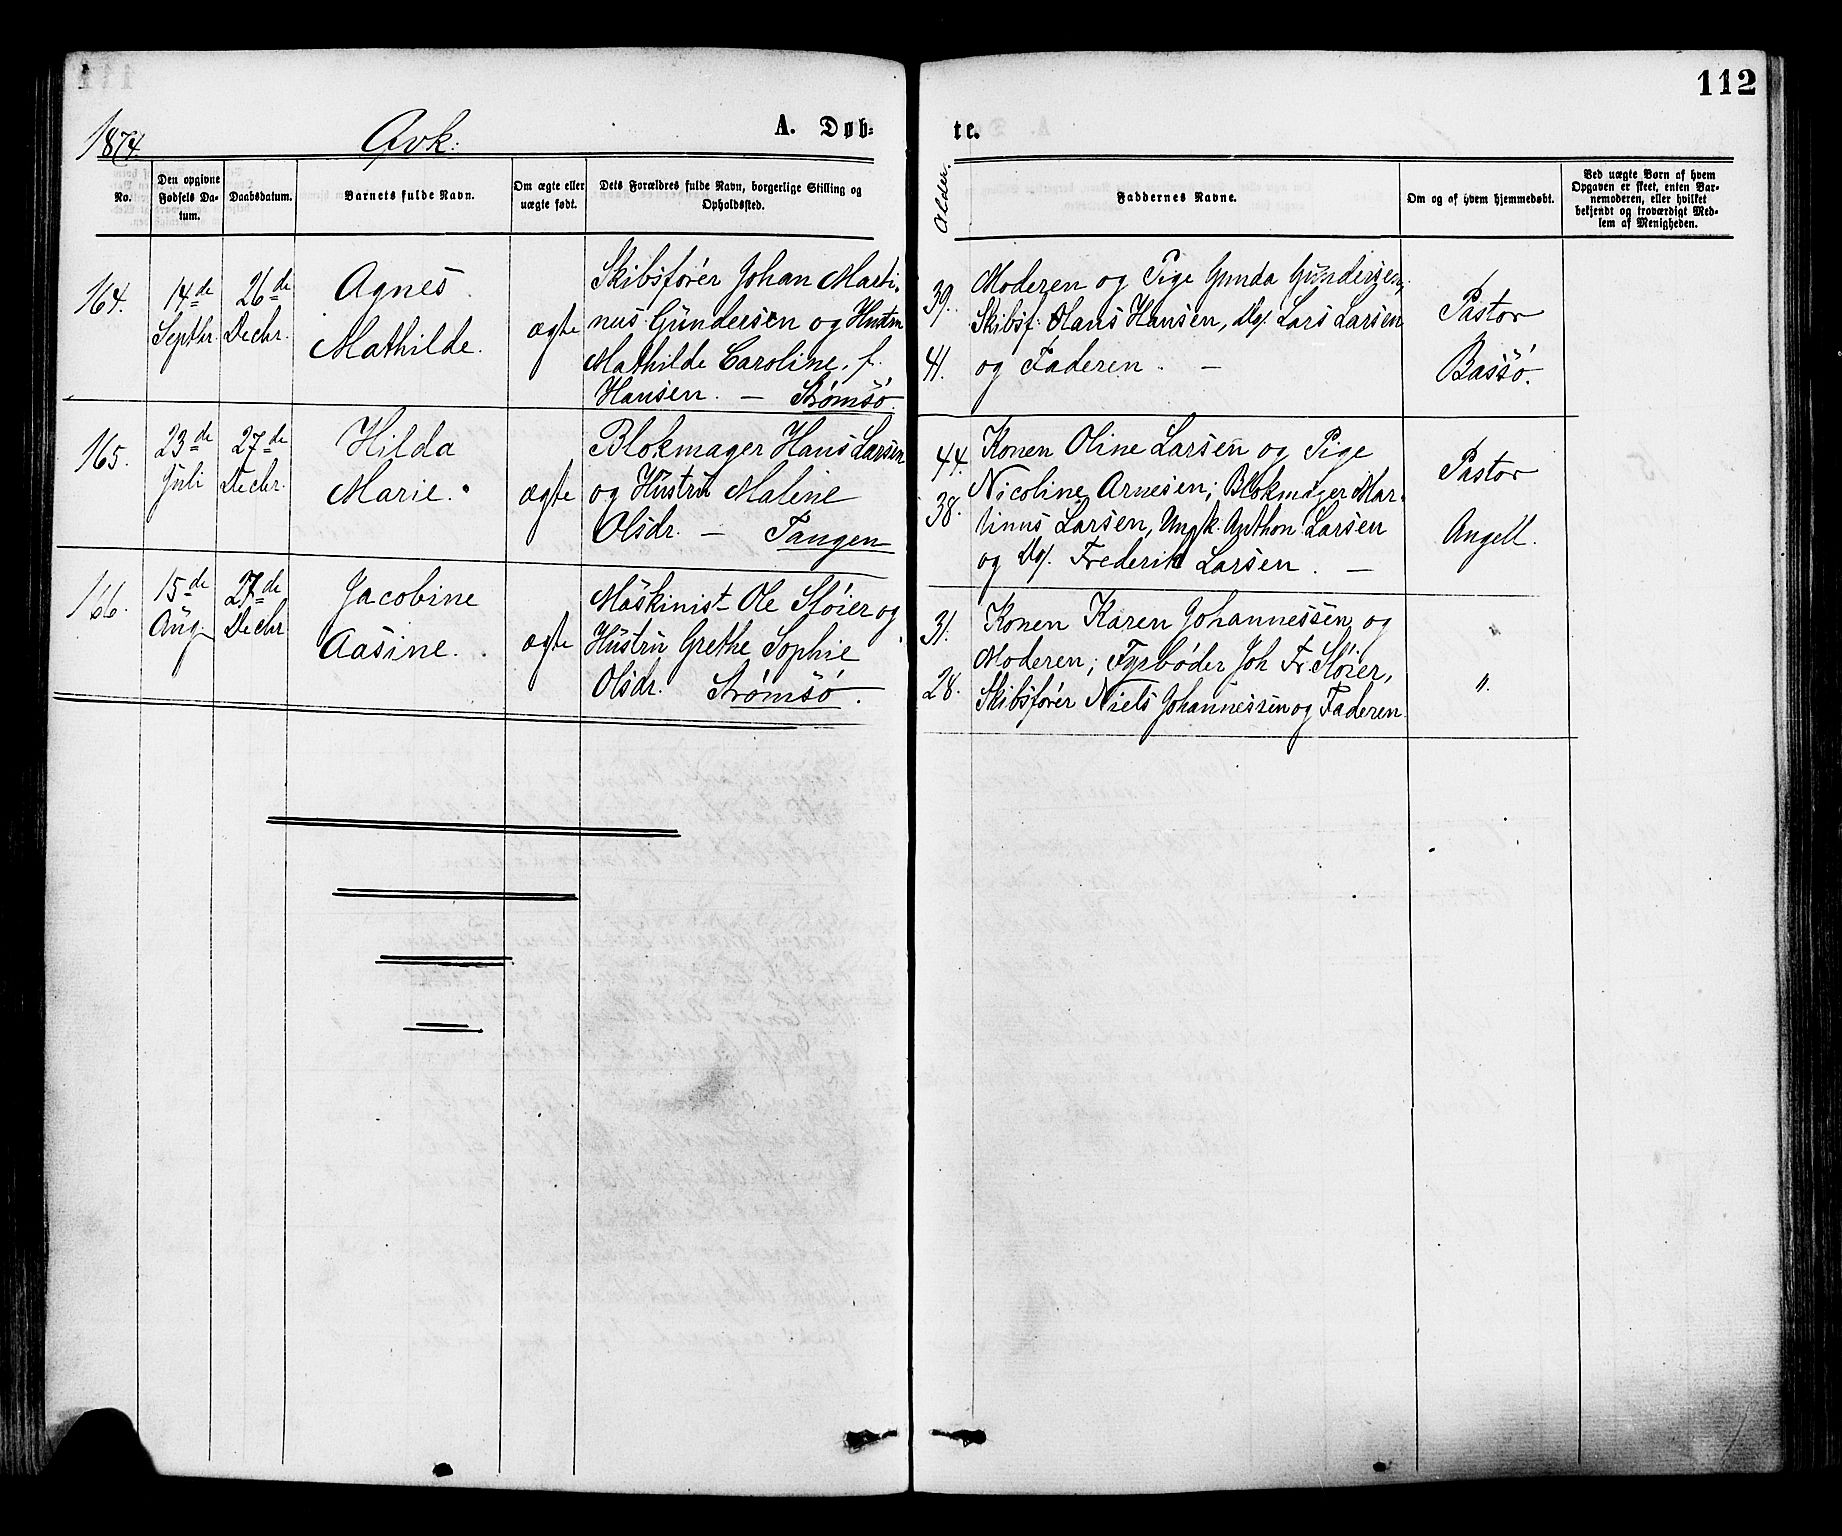 112
1874.
Qvk:
A. Døb-
te.
No.
Den opgivne
Fødsels Da-
tum.
Daabsdatum.
Barnets fulde Navn.
Om ægte eller
uægte født.
Dets Forældres fulde Navn, borgerlige Stilling og
Opholdssted.
Alder.
Faddernes Navne.
Om og af hvem hjemmedøbt.
Ved uægte Børn af hvem
Opgaven er skeet, enten Bar-
nemoderen, eller hvilket
bekjendt og troværdigt Med-
lem af Menigheden.
164.
14de
Septbr.
26de
Decbr.
Agnes
Mathilde.
ægte
Skibsfører Johan Marti-
nus Gundersen og Hustru
Mathilde Caroline, f.
Hansen. – Strømsø.
39.
41.
Moderen og Pige Gunda Gundersen,
Skibsf. Hans Hansen, Do/. Lars Larsen
og Faderen. –
Pastor
Bassø.
165.
23de
Juli
27de
Decbr.
Hilda
Marie.
ægte
Blokmager Hans Larsen
og Hustru Maline
Olsdr. – Tangen
44.
38.
Konen Oline Larsen og Pige
Nicoline Arnesen; Blokmager Mar-
tinus Larsen, Ungk. Anthon Larsen
og Do/. Frederik Larsen. –
Pastor
Angell.
166.
15de
Aug.
27de
Decbr
Jacobine
Aasine.
ægte
Maskinist Ole Støier og
Hustru Grethe Sophie
Olsdr. Strømsø.
31.
28.
Konen Karen Johannessen og
Moderen; Fyrbøder Joh Fr. Støier,
Skibsfører Niels Johannessen og Faderen.
"
".